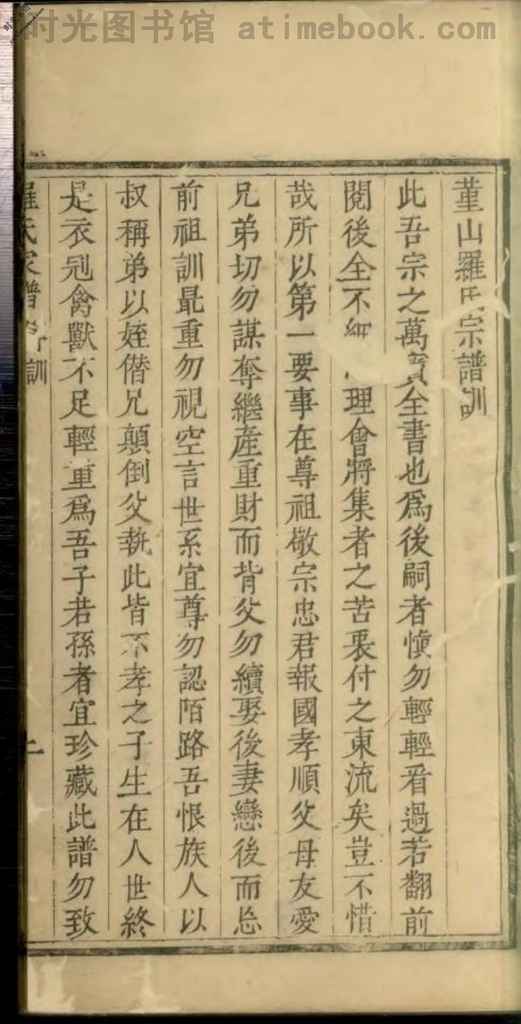 时光图书馆 atimebook.com
董山羅氏宗譜訓
此吾宗之萬寳全書也爲後嗣者慎勿輕輕看過若翻前
閱後全不細理會將集者之苦衷付之東流矣豈不惜
哉所以第一要事在尊祖敬宗忠君報國孝順父母友愛
兄弟切勿謀奪繼產重財而背父勿續娶後妻戀後而忘
前祖訓最重勿視空言世系宜尊勿認陌路吾恨族人以
叔稱弟以姪僭兄顛倒父執此皆不孝之子生在人世終
是衣冠禽獸不足輕重爲吾子若孫者宜珍藏此譜勿致
羅氏家譜 訓